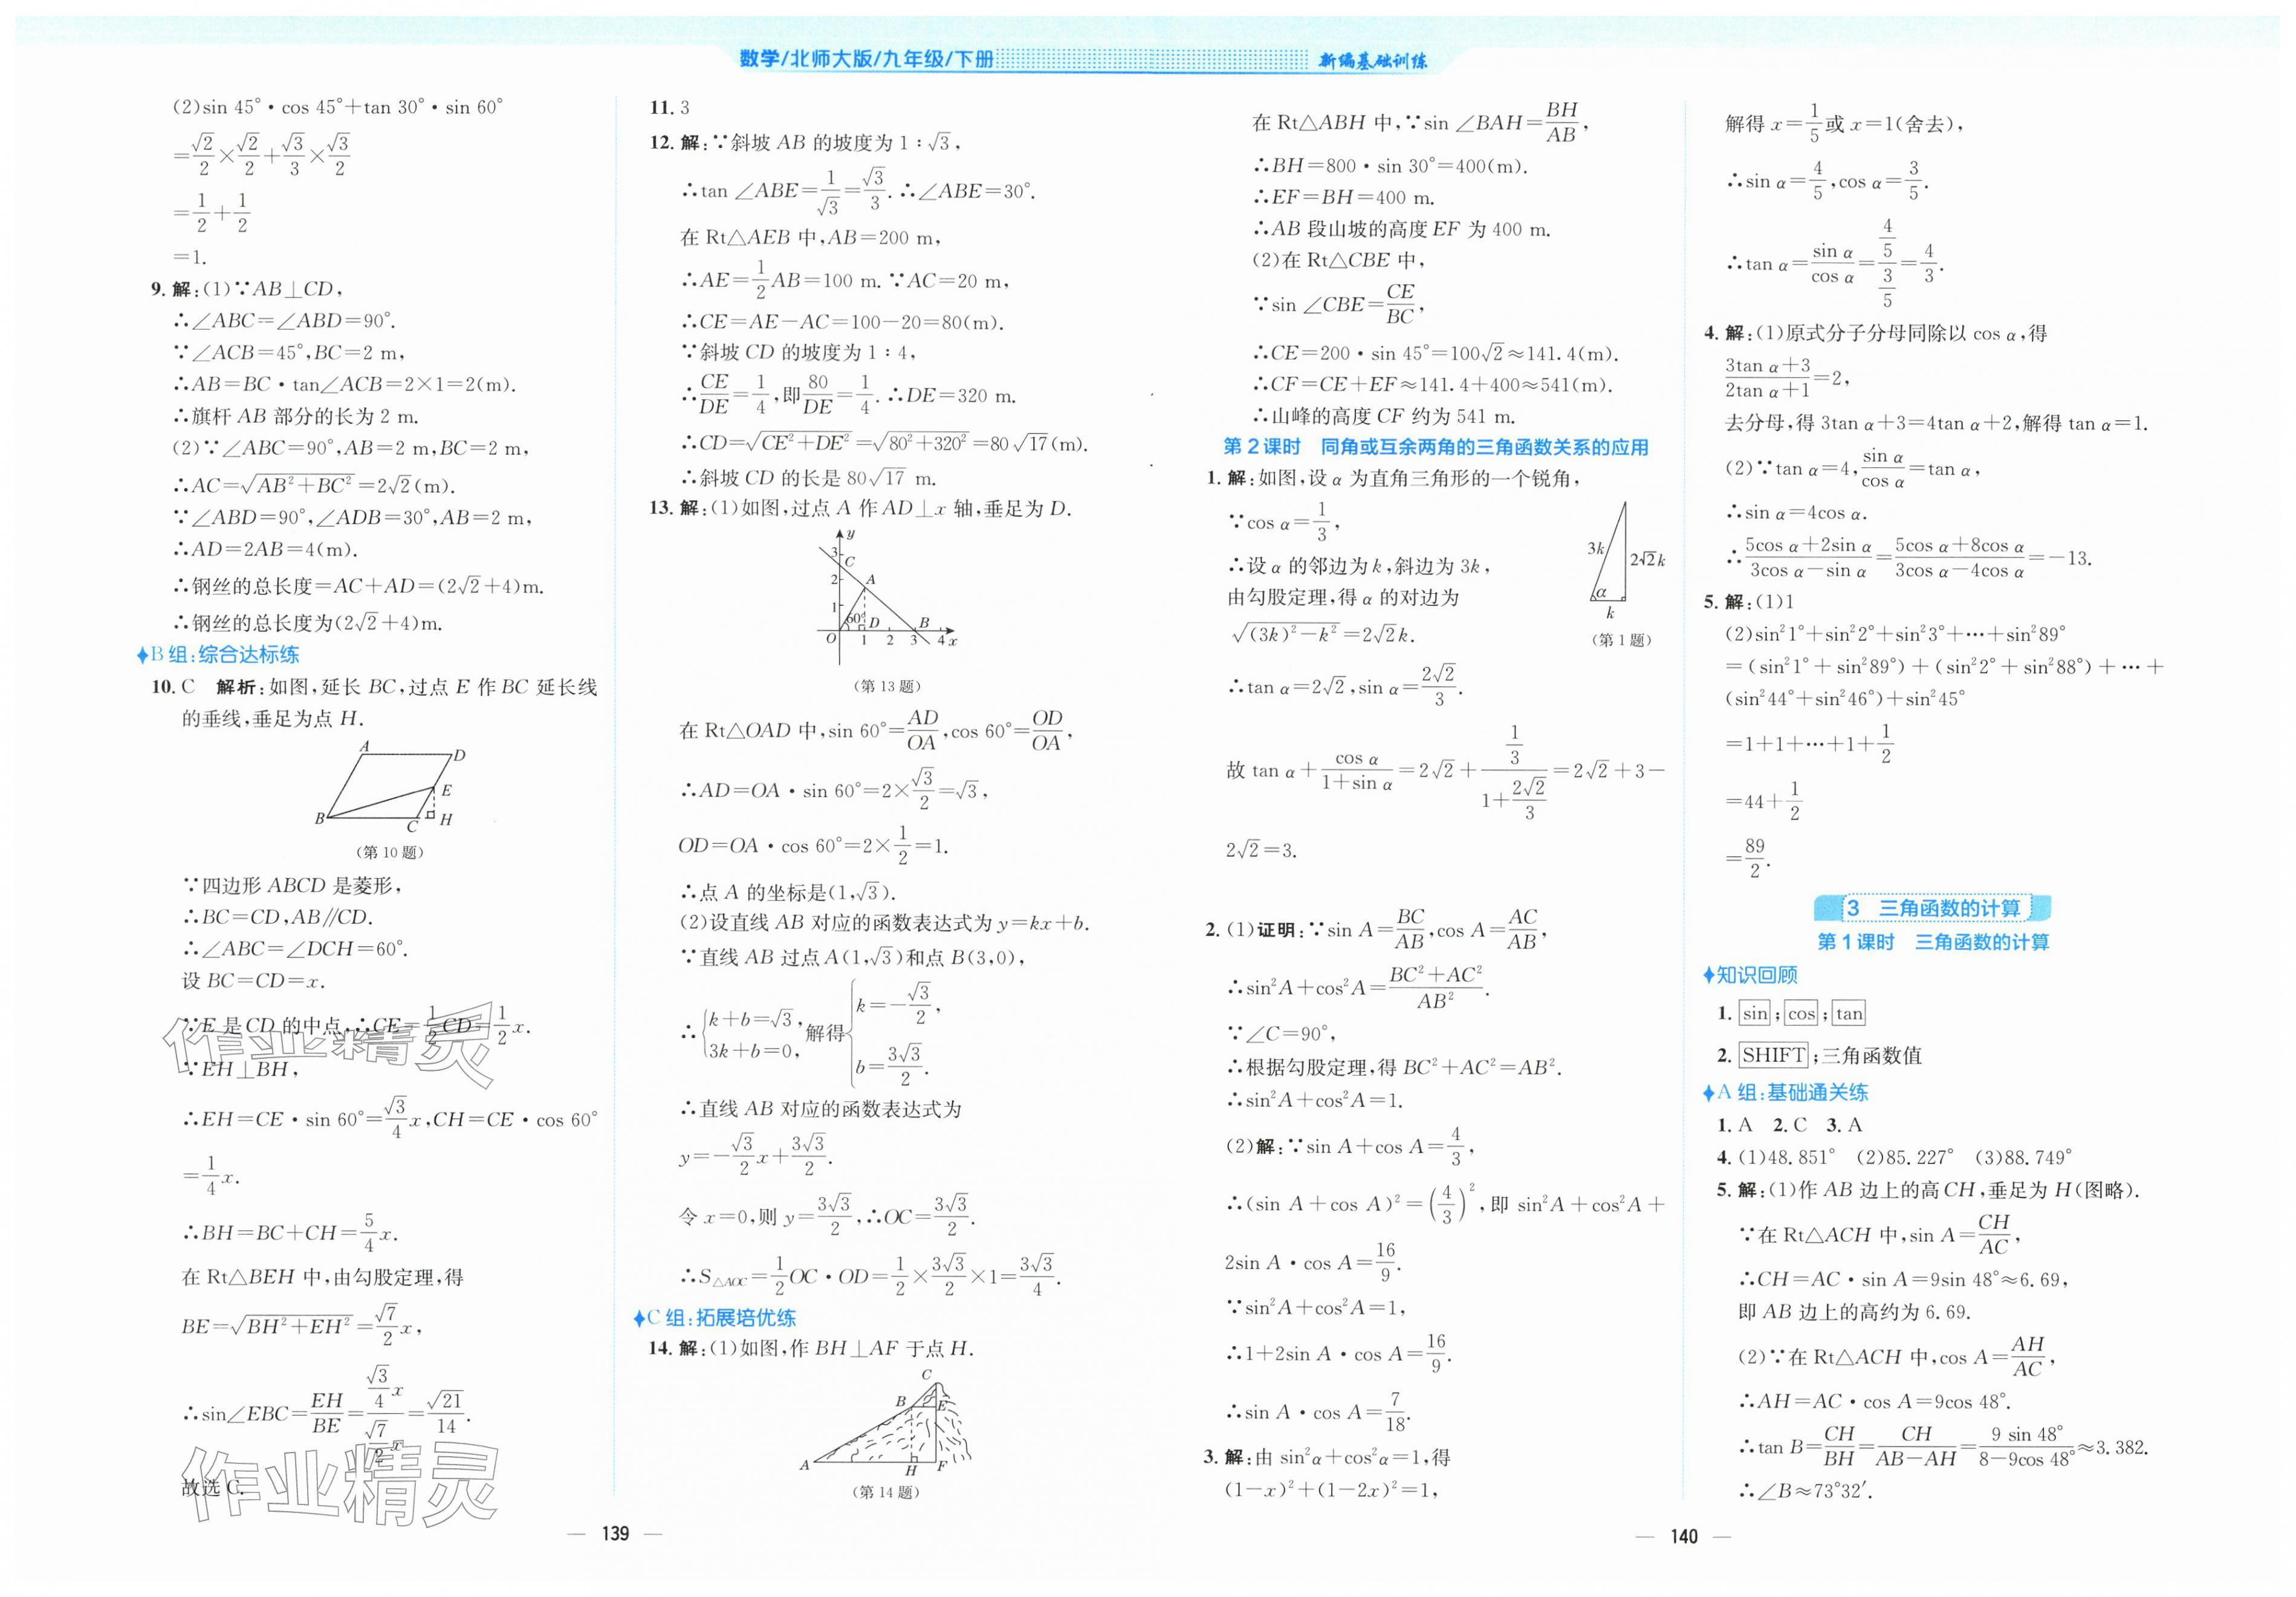 数学/北师大版/九年级/下册
新编基础训练
(2)sin 45°·cos 45°+tan 30°·sin 60°
=√2/2×√2/2+√3/3×√3/2
=1/2+1/2
=1.
9. 解:(1)∵AB⊥CD,
∴∠ABC=∠ABD=90°.
∵∠ACB=45°,BC=2 m,
∴AB=BC·tan∠ACB=2×1=2(m).
∴旗杆 AB 部分的长为 2 m.
(2)∵∠ABC=90°,AB=2 m,BC=2 m,
∴AC=√(AB²+BC²)=2√2(m).
∵∠ABD=90°,∠ADB=30°,AB=2 m,
∴AD=2AB=4(m).
∴钢丝的总长度=AC+AD=(2√2+4)m.
∴钢丝的总长度为(2√2+4)m.
B 组:综合达标练
10. C 解析:如图,延长 BC,过点 E 作 BC 延长线
的垂线,垂足为点 H.
A
D
E
B
C
H
(第 10 题)
∵四边形 ABCD 是菱形,
∴BC=CD,AB∥CD.
∴∠ABC=∠DCH=60°.
设 BC=CD=x.
∵E 是 CD 的中点,∴CE=1/2CD=1/2x.
∵EH⊥BH,
∴EH=CE·sin 60°=√3/4x,CH=CE·cos 60°
=1/4x.
∴BH=BC+CH=5/4x.
在 Rt△BEH 中,由勾股定理,得
BE=√(BH²+EH²)=√7/2x,
∴sin∠EBC=EH/BE=(√3/4x)/(√7/2x)=√21/14.
故选 C.
作业精灵
作业精灵
139
11. 3
12. 解:∵斜坡 AB 的坡度为 1∶√3,
∴tan ∠ABE=1/√3=√3/3. ∴∠ABE=30°.
在 Rt△AEB 中,AB=200 m,
∴AE=1/2AB=100 m. ∵AC=20 m,
∴CE=AE-AC=100-20=80(m).
∵斜坡 CD 的坡度为 1∶4,
∴CE/DE=1/4,即80/DE=1/4. ∴DE=320 m.
∴CD=√(CE²+DE²)=√(80²+320²)=80√17(m).
∴斜坡 CD 的长是 80√17 m.
13. 解:(1)如图,过点 A 作 AD⊥x 轴,垂足为 D.
y
3
C
2
A
1
60°
D
B
O
1
2
3
4
x
(第 13 题)
在 Rt△OAD 中,sin 60°=AD/OA,cos 60°=OD/OA,
∴AD=OA·sin 60°=2×√3/2=√3,
OD=OA·cos 60°=2×1/2=1.
∴点 A 的坐标是(1,√3).
(2)设直线 AB 对应的函数表达式为 y=kx+b.
∵直线 AB 过点 A(1,√3)和点 B(3,0),
∴{k+b=√3, 3k+b=0, 解得{k=-√3/2, b=3√3/2.
∴直线 AB 对应的函数表达式为
y=-√3/2x+3√3/2.
令 x=0,则 y=3√3/2,∴OC=3√3/2.
∴S△AOC=1/2OC·OD=1/2×3√3/2×1=3√3/4.
C 组:拓展培优练
14. 解:(1)如图,作 BH⊥AF 于点 H.
C
B
E
A
H
F
(第 14 题)
在 Rt△ABH 中,∵sin ∠BAH=BH/AB,
∴BH=800·sin 30°=400(m).
∴EF=BH=400 m.
∴AB 段山坡的高度 EF 为 400 m.
(2)在 Rt△CBE 中,
∵sin ∠CBE=CE/BC,
∴CE=200·sin 45°=100√2≈141.4(m).
∴CF=CE+EF≈141.4+400≈541(m).
∴山峰的高度 CF 约为 541 m.
第 2 课时 同角或互余两角的三角函数关系的应用
1. 解:如图,设 α 为直角三角形的一个锐角,
∵cos α=1/3,
∴设 α 的邻边为 k,斜边为 3k,
由勾股定理,得 α 的对边为
√((3k)²-k²)=2√2k.
3k
2√2k
α
k
(第 1 题)
∴tan α=2√2,sin α=2√2/3.
故 tan α+cos α/(1+sin α)=2√2+(1/3)/(1+2√2/3)=2√2+3-
2√2=3.
2. (1)证明:∵sin A=BC/AB,cos A=AC/AB,
∴sin²A+cos²A=(BC²+AC²)/AB².
∵∠C=90°,
∴根据勾股定理,得 BC²+AC²=AB².
∴sin²A+cos²A=1.
(2)解:∵sin A+cos A=4/3,
∴(sin A+cos A)²=(4/3)²,即 sin²A+cos²A+
2sin A·cos A=16/9.
∵sin²A+cos²A=1,
∴1+2sin A·cos A=16/9.
∴sin A·cos A=7/18.
3. 解:由 sin²α+cos²α=1,得
(1-x)²+(1-2x)²=1,
解得 x=1/5或 x=1(舍去),
∴sin α=4/5,cos α=3/5.
∴tan α=sin α/cos α=(4/5)/(3/5)=4/3.
4. 解:(1)原式分子分母同除以 cos α,得
(3tan α+3)/(2tan α+1)=2,
去分母,得 3tan α+3=4tan α+2,解得 tan α=1.
(2)∵tan α=4,sin α/cos α=tan α,
∴sin α=4cos α.
∴(5cos α+2sin α)/(3cos α-sin α)=(5cos α+8cos α)/(3cos α-4cos α)=-13.
5. 解:(1)1
(2)sin²1°+sin²2°+sin²3°+···+sin²89°
=(sin²1°+sin²89°)+(sin²2°+sin²88°)+···+
(sin²44°+sin²46°)+sin²45°
=1+1+···+1+1/2
=44+1/2
=89/2.
3 三角函数的计算
第 1 课时 三角函数的计算
知识回顾
1. sin;cos;tan
2. SHIFT;三角函数值
A 组:基础通关练
1. A 2. C 3. A
4. (1)48.851° (2)85.227° (3)88.749°
5. 解:(1)作 AB 边上的高 CH,垂足为 H(图略).
∵在 Rt△ACH 中,sin A=CH/AC,
∴CH=AC·sin A=9sin 48°≈6.69,
即 AB 边上的高约为 6.69.
(2)∵在 Rt△ACH 中,cos A=AH/AC,
∴AH=AC·cos A=9cos 48°.
∴tan B=CH/BH=CH/(AB-AH)=9 sin 48°/(8-9cos 48°)≈3.382.
∴∠B≈73°32′.
140